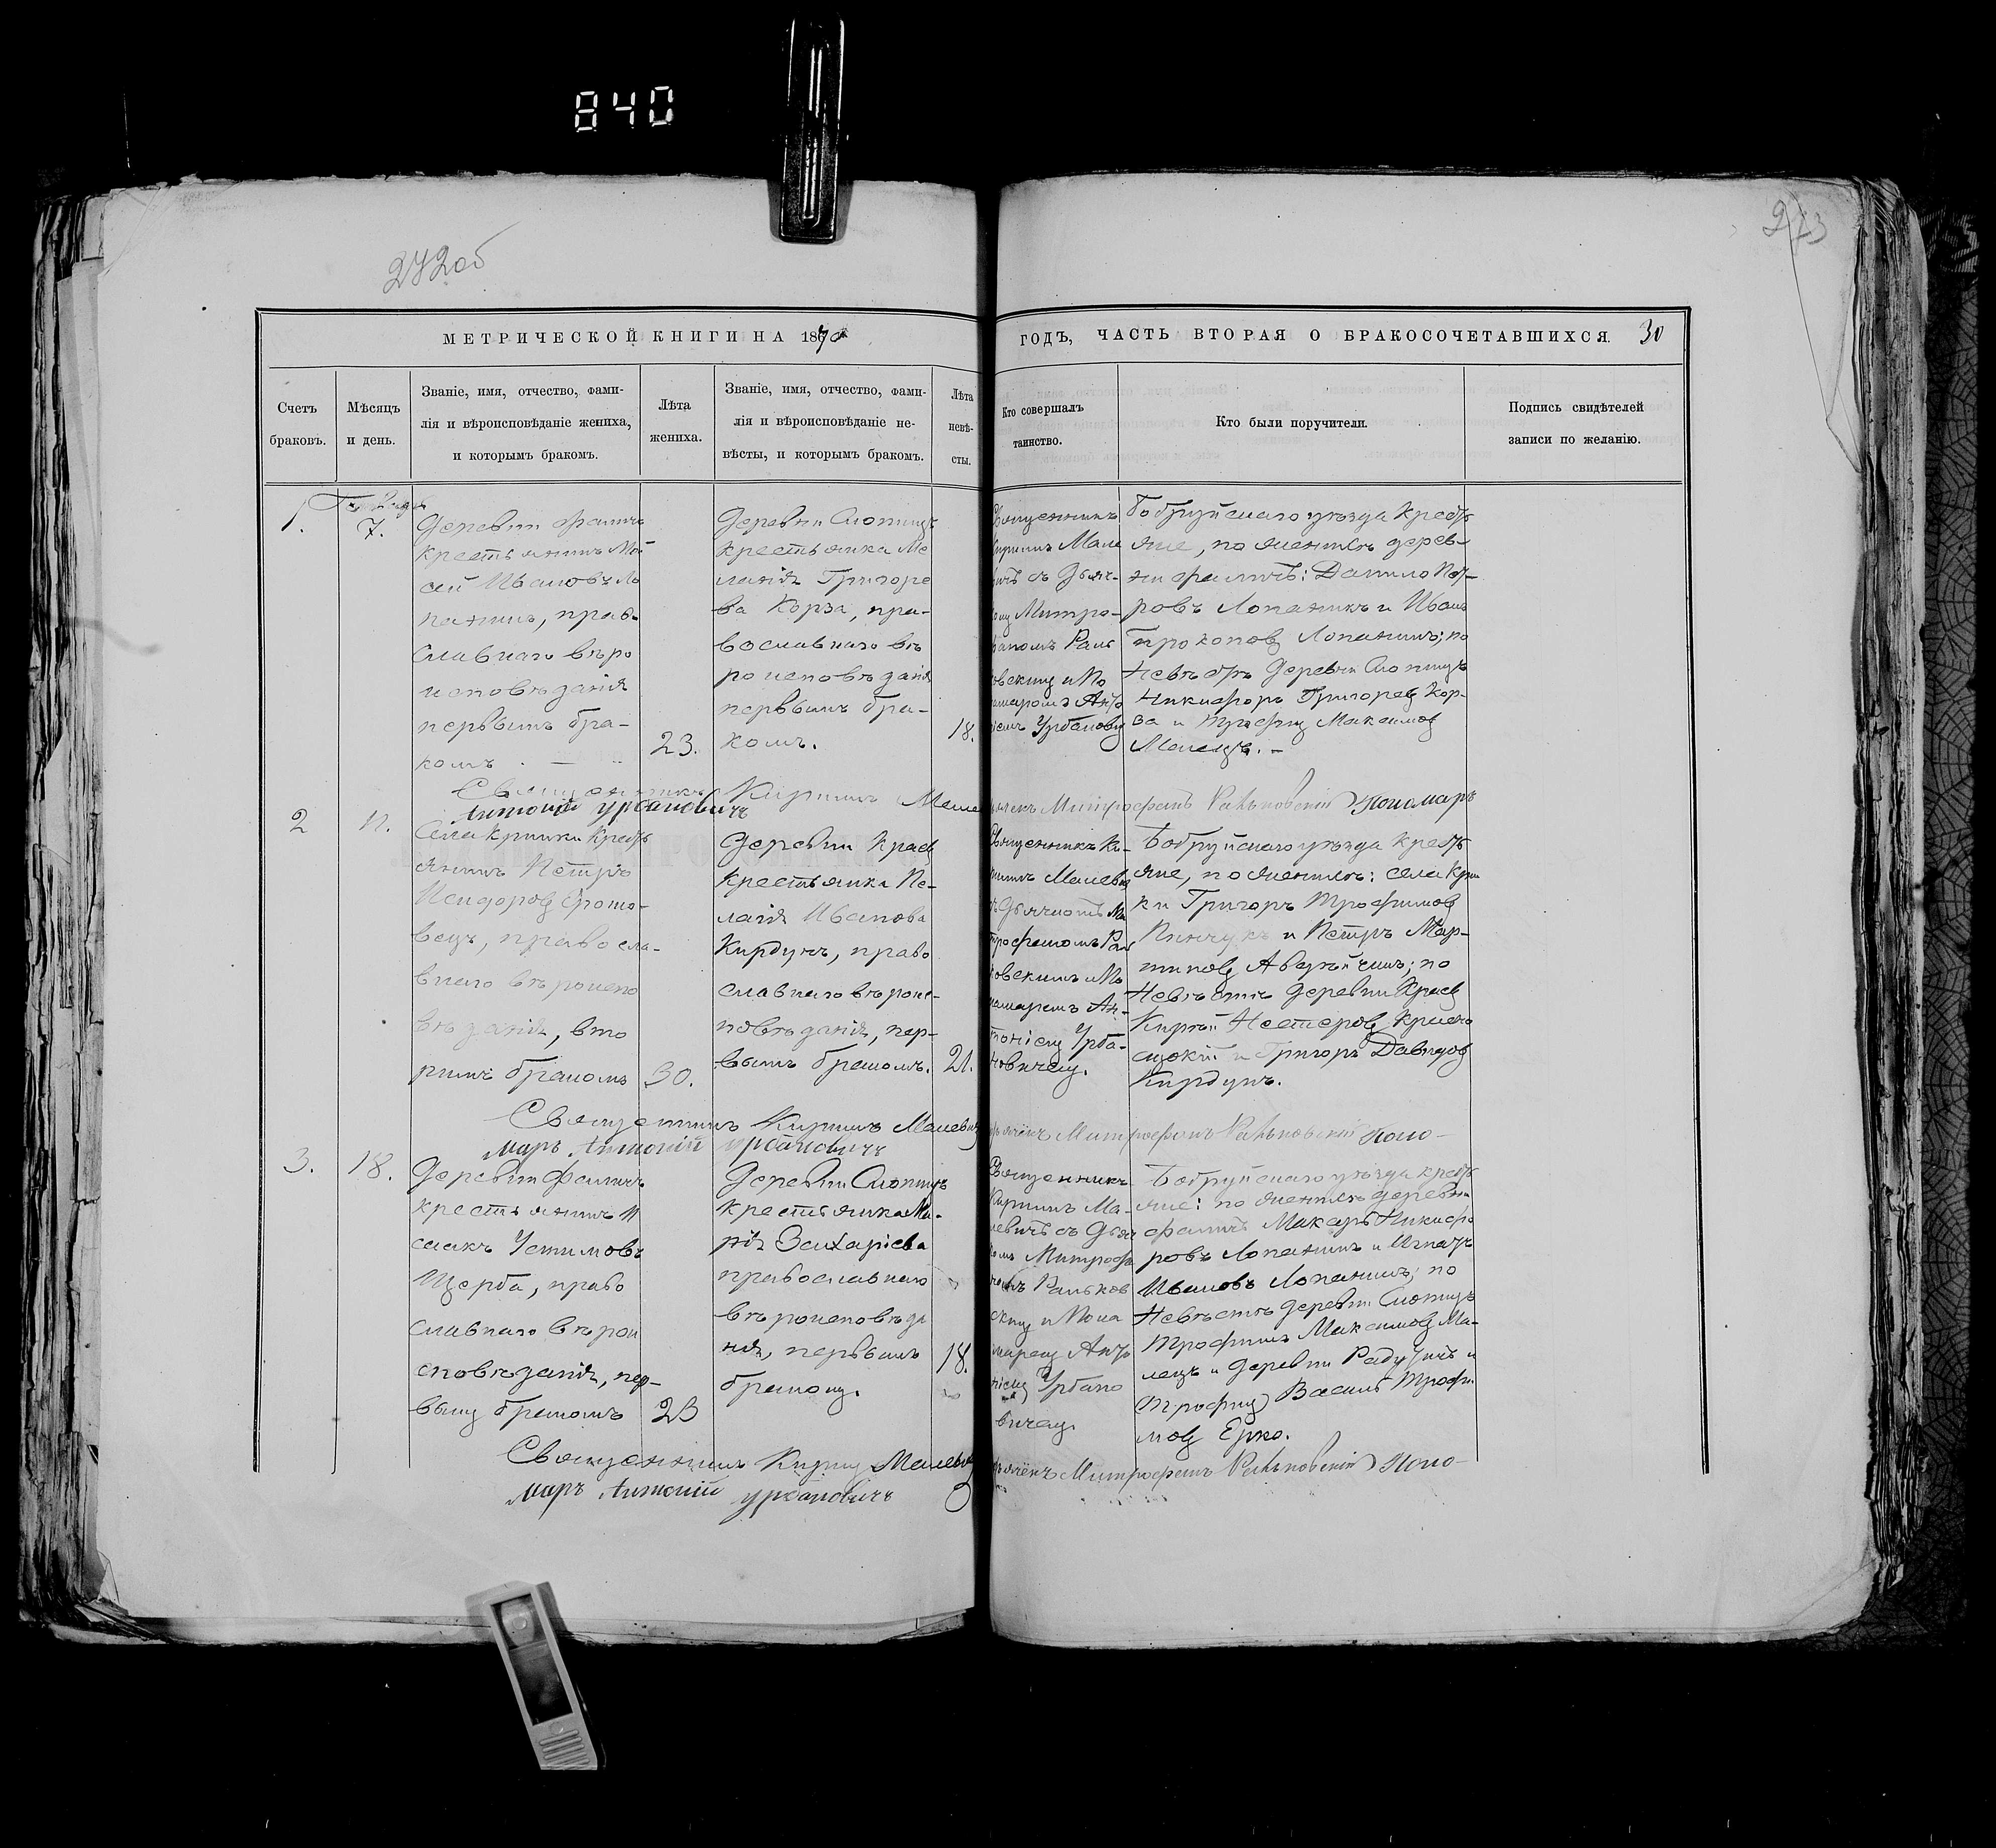 840
272 об
273
МЕТРИЧЕСКОЙ КНИГИ НА 1870
ГОДЪ, ЧАСТЬ ВТОРАЯ О БРАКОСОЧЕТАВШИХСЯ. 30
Счетъ
браковъ.
Мѣсяцъ
и день.
Званіе, имя, отчество, фами-
лія и вѣроисповѣданіе жениха,
и которымъ бракомъ.
Лѣта
жениха.
Званіе, имя, отчество, фами-
лія и вѣроисповѣданіе не-
вѣсты, и которымъ бракомъ.
Лѣта
невѣ-
сты.
Кто совершалъ
таинство.
Кто были поручители.
Подпись свидѣтелей
записи по желанію.
1.
7.
Деревни Фаличъ
крестьянинъ Мой
сей Ивановъ Ло
панинъ, прав-
славнаго вѣро
исповѣданія
первымъ бра-
комъ
23.
Деревни
крестьянка Ме
ланія Григорье
ва Корза, пра-
вославнаго вѣ
роисповѣданія
первымъ бра-
комъ.
18.
Священникъ
Кириллъ Мале
вичъ съ Дьяч-
Митро-
фаномъ Рань
ковскимъ и По
номаромъ Анто
ніемъ Урбанову
Бобруйскаго уѣзда кресть
яне, по женихѣ дерев-
ни Фаличъ: Данило Пет-
ровъ Лопаникъ и Иванъ
Прокоповъ Лопанинъ; по
Невѣстѣ Деревни
Никифоръ Григорьев Кор-
за и Трофимъ Максимовъ
Малецъ. -
Священникъ Кириллъ Малев
Антоній Урбановичъ
Митрофанъ Раньковскій Пономаръ
2
11.
Села Кривки Кресть
янинъ Петръ
Исидоровъ
вецъ, правосла-
внаго вѣроиспо
вѣданія, вто
рымъ бракомъ
30.
Деревни
крестьянка Пе-
лагія Иванова
Кирдунъ, право
славнаго вѣроис-
повѣданія, пер-
вымъ бракомъ.
21.
Священникъ Ки-
риллъ Малевич
съ Дьячкомъ Ми
трофаномъ Рань
ковскимъ и По
номаремъ Ан-
тоніемъ Урба-
новичемъ.
Бобруйскаго уѣзда кресть
яне, по женихѣ: села Кри
ки Григоръ Трофимовъ
Пинчукъ и Петръ Мар-
тиновъ; по
Невѣстѣ Деревни
Нестеровъ
и Григоръ Давидовъ
Кирдунъ.
Священникъ Кириллъ Малевич
Дьячекъ Митрофанъ Раньковскій Поно-
маръ Антоній Урбановичъ
3.
18.
Деревни Фаличъ
крестьянинъ И
саакъ Устимовъ
Щерба, право
славнаго вѣрои
сповѣданія, пер-
вымъ бракомъ
23
Деревни
крестьянка Ма-
рія Захаріева
православнаго
вѣроисповѣда
нія, первымъ
бракомъ.
18.
Священникъ
Кириллъ Ма-
левичъ съ Дьяч
комъ Митрофа
номъ Раньков
скимъ и Поно
маремъ Анто
ніемъ Урбано
вичемъ.
Бобруйскаго уѣзда кресть
яне: по женихѣ деревни
Фаличъ Макаръ Никифо
ровъ Лопанинъ и Игнатъ
Ивановъ Лопанинъ; по
Невѣстѣ деревни
Трофимъ Максимовъ Ма-
лецъ и деревни
(Трофимъ) Василь Трофи
мовъ Ерко.
Священникъ Кириллъ Малевич
Дьячекъ Митрофанъ Раньковскій Поно-
маръ Антоній Урбановичъ